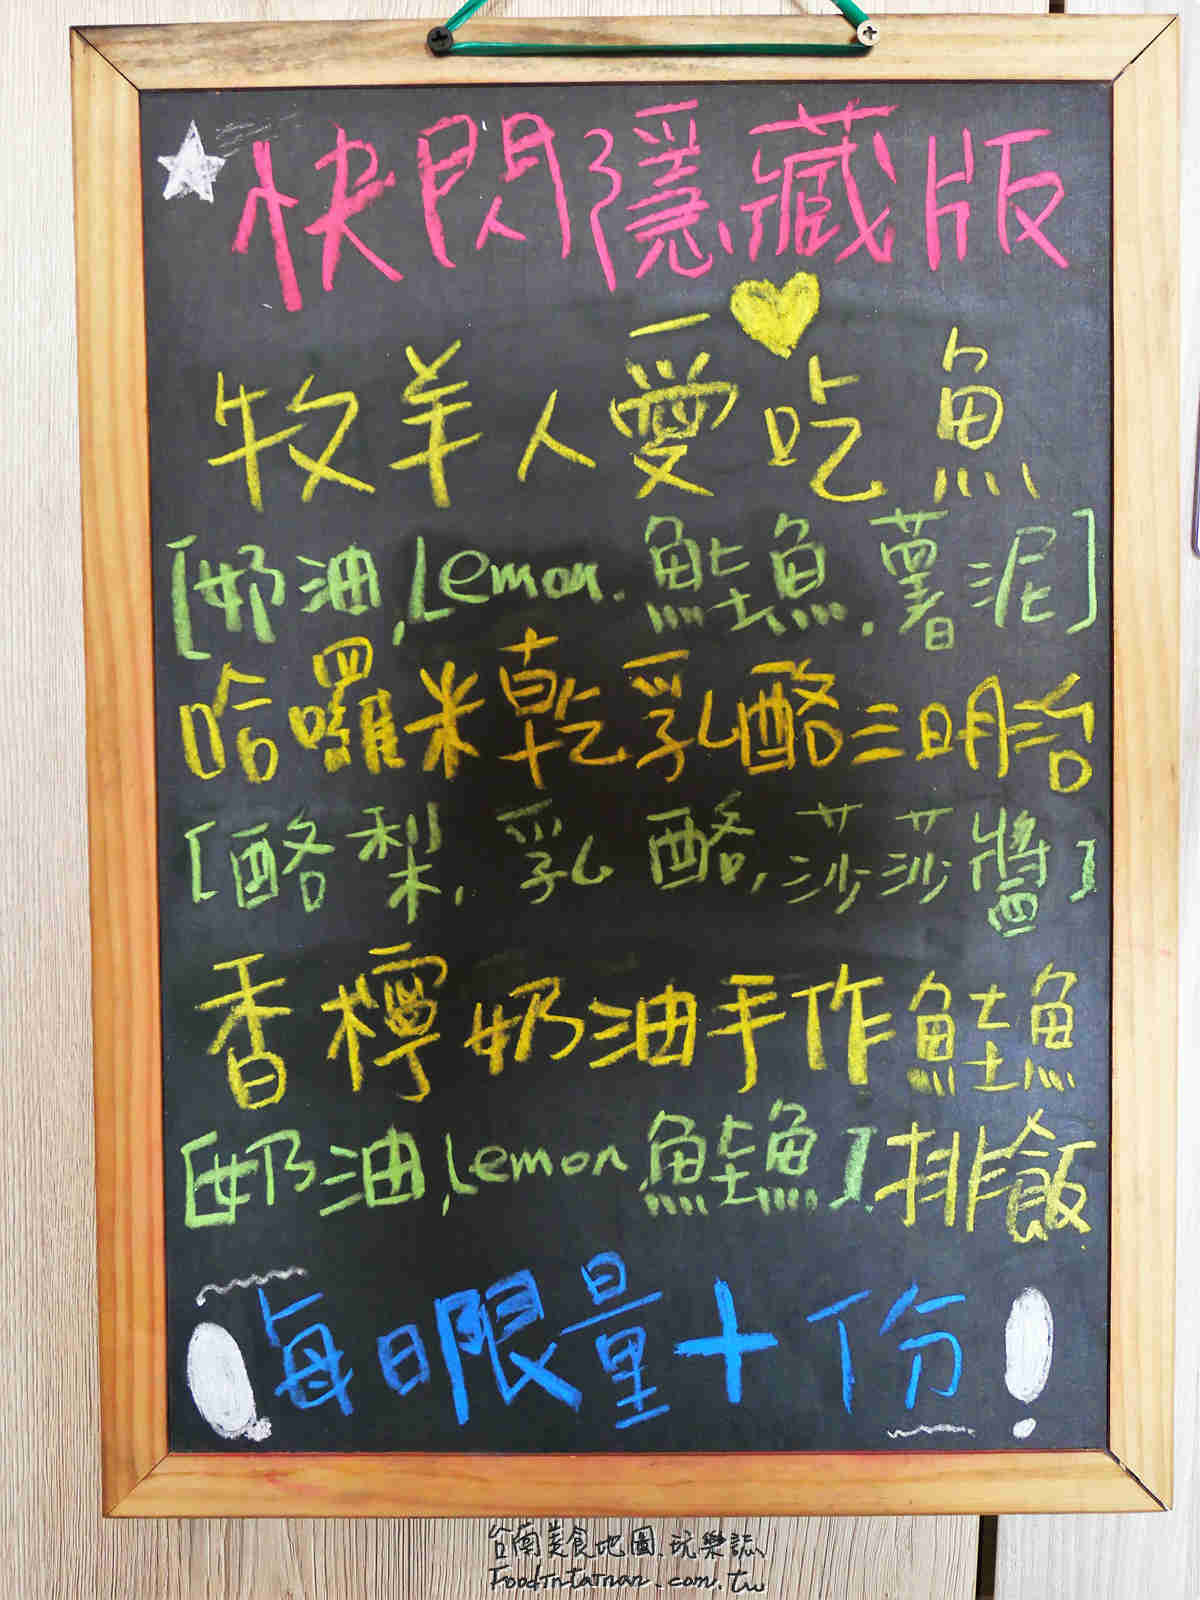 快閃隱藏版
牧羊人愛吃魚
[奶油,Lemon.鮭魚.薯泥]
哈囉米乾乳酪三明治
[酪梨,乳酪,莎莎醬]
香檸奶油手作鮭魚
[奶油,Lemon,鮭魚]排飯
每日限量十份!
台南美食地圖.玩樂誌
FoodInTainan.com.tw